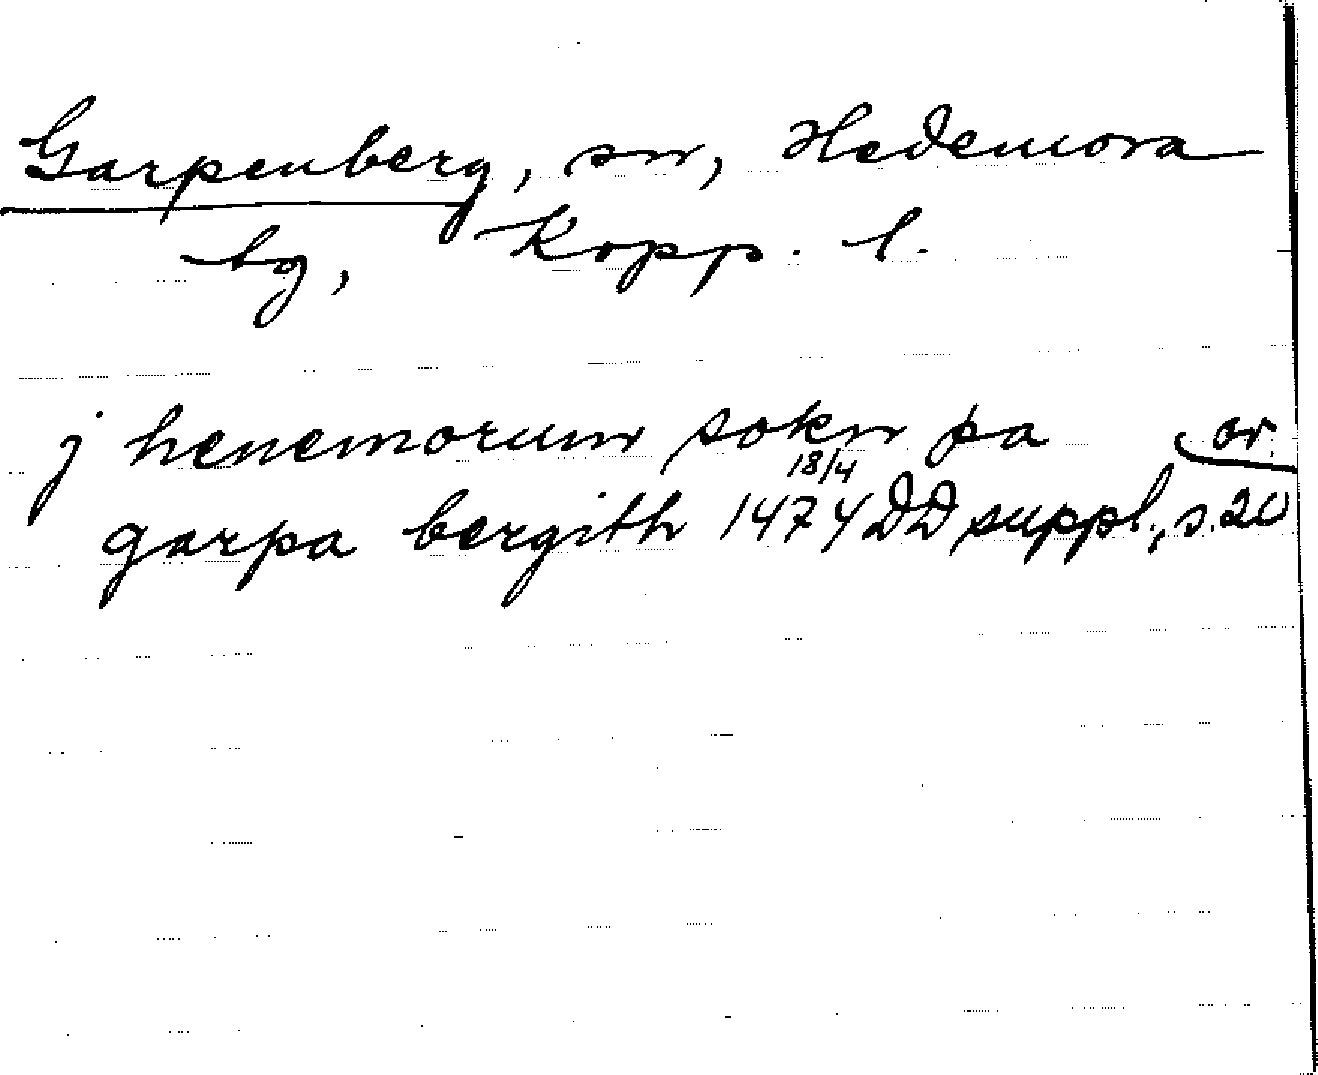 Garpenberg, sn, Hedemora
bg, Kopp. l.
j henemorum sokn pa or.
garpa bergith 18/4 1474 DD suppl., s. 20